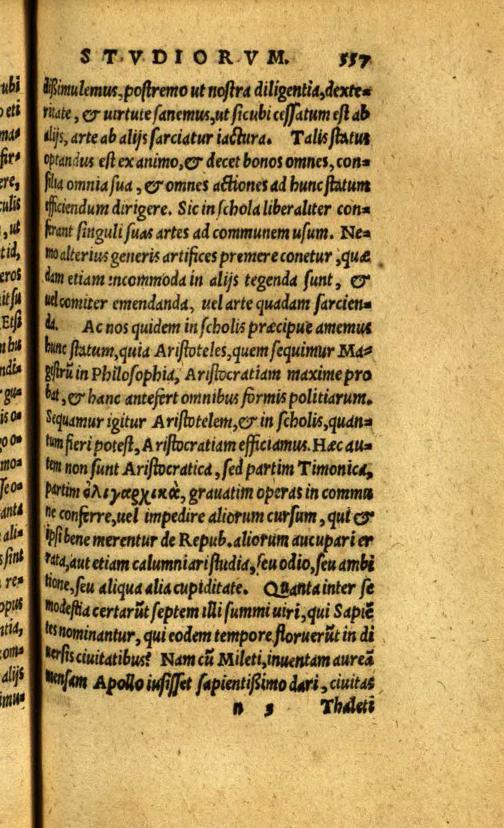 STVDIORVM. 557
dißimulemus, postremo ut nostra diligentia, dexte=
ritate, & uirtute sanemus, ut sicubi cessatum est ab
alijs, arte ab alijs sarciatur iactura. Talis status
optandus est ex animo, & decet bonos omnes, con=
silia omnia sua, & omnes actiones ad hunc statum
efficiendum dirigere. Sic in schola liberaliter con=
ferant singuli suas artes ad communem usum. Ne=
mo alterius generis artifices premere conetur, quæ
dam etiam incommoda in alijs tegenda sunt, &
uel comiter emendanda, uel arte quadam sarcien=
da. Ac nos quidem in scholis præcipue amemus
hunc statum, quia Aristoteles, quem sequimur Ma=
gistrū in Philosophia, Aristocratiam maxime pro
bat, & hanc antefert omnibus formis politiarum.
Sequamur igitur Aristotelem, & in scholis, quan=
tum fieri potest, Aristocratiam efficiamus. Hæc au=
tem non sunt Aristocratica, sed partim Timonica,
partim ὀλιγαρχικὰ, grauatim operas in commu
ne conferre, uel impedire aliorum cursum, qui &
ipsi bene merentur de Repub. aliorum aucupari er
rata, aut etiam calumniari studia, seu odio, seu ambi
tione, seu aliqua alia cupiditate. Quanta inter se
modestia certarūt septem illi summi uiri, qui Sapiē
tes nominantur, qui eodem tempore floruerūt in di
uersis ciuitatibus? Nam cū Mileti, inuentam aureā
mensam Apollo iusisset sapientißimo dari, ciuitas
n 3 Thaleti
ubi
ma=
ere,
culis
, ut
tid,
eros
Etsi
mo=
anta
ali=
re=
opus
ntia,
com=
alijs
imu=